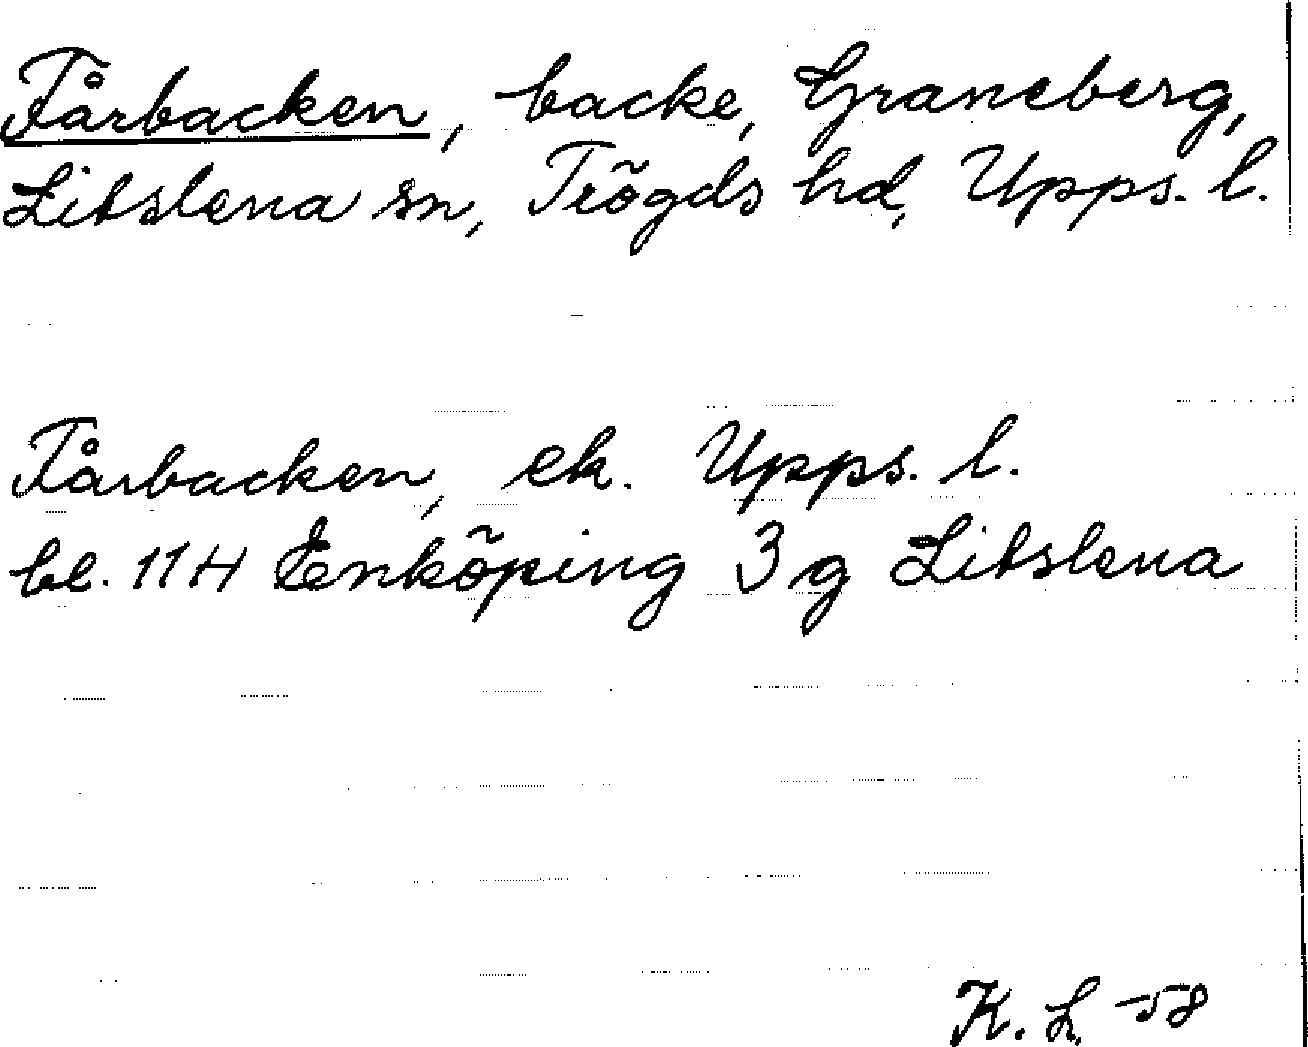 Fårbacken, backe, Graneberg,
Litslena sn, Trögds hd, Upps. l.
Fårbacken, ek. Upps. l.
bl. 11H Enköping 3g Litslena
K. L. -58